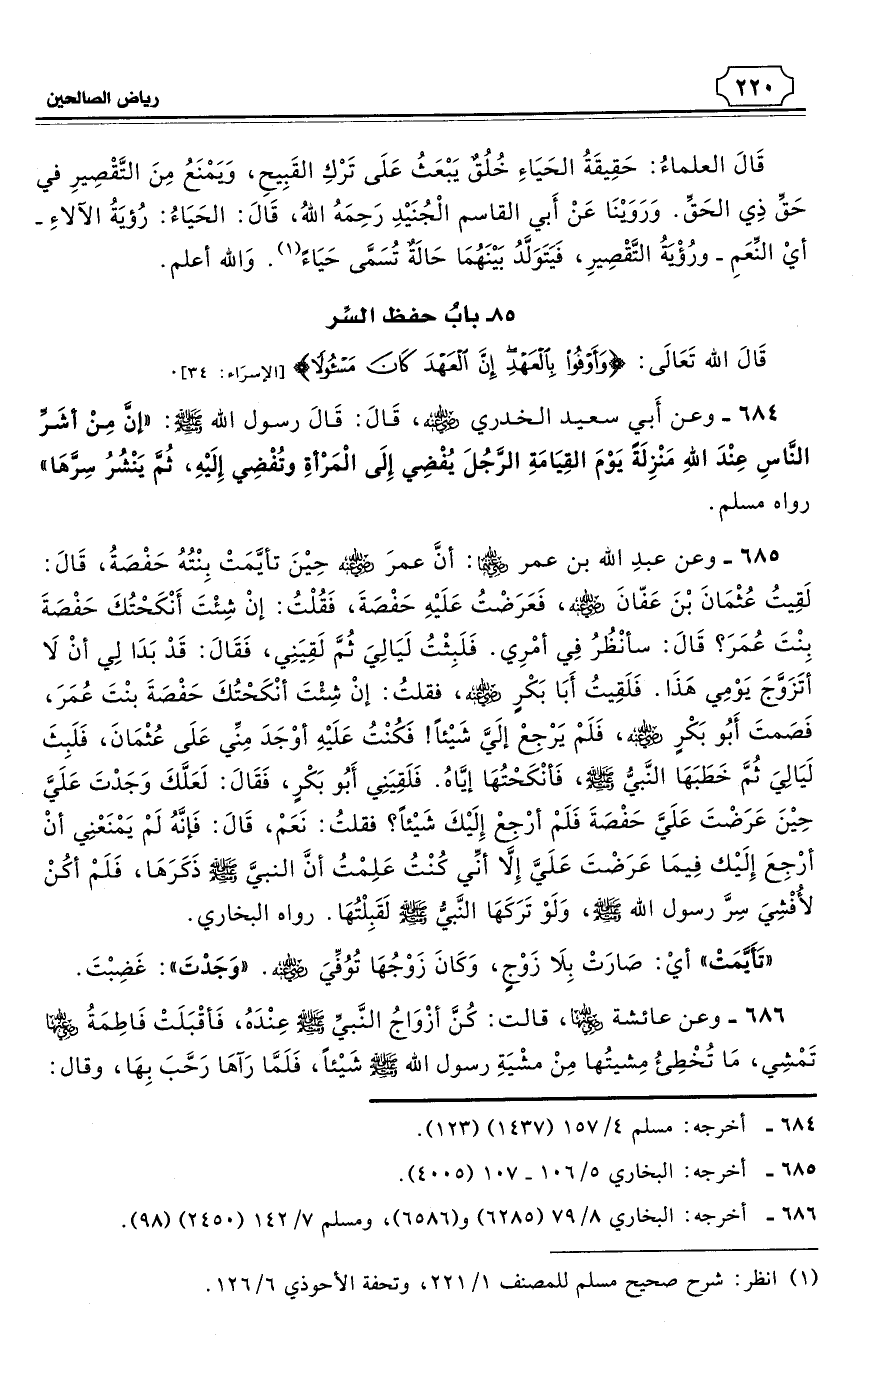 ٢٢٠
رياض الصالحين
قَالَ العلماءُ: حَقِيقَةُ الحَيَاءِ خُلُقٌ يَبْعَثُ عَلَى تَرْكِ القَبِيحِ، وَيَمْنَعُ مِنَ التَّقْصِيرِ في
حَقِّ ذِي الحَقِّ. وَرَوَيْنَا عَنْ أَبي القاسم الْجُنَيْدِ رَحِمَهُ اللهُ، قَالَ: الحَيَاءُ: رُؤيَةُ الآلاءِ ـ
أيْ النِّعَمِ ـ ورُؤْيَةُ التَّقْصِيرِ، فَيَتَوَلَّدُ بَيْنَهُمَا حَالَةٌ تُسَمَّى حَيَاءً(١). وَالله أعلم.
٨٥ـ بابُ حفظ السِّر
قَالَ الله تَعَالَى: ﴿وَأَوْفُوا۟ بِٱلْعَهْدِۖ إِنَّ ٱلْعَهْدَ كَانَ مَسْـُٔولًا﴾ [الإسرَاء: ٣٤].
٦٨٤ ـ وعن أَبي سعيد الخدري رضي الله عنه، قَالَ: قَالَ رسول الله ﷺ: «إنَّ مِنْ أشَرِّ
النَّاسِ عِنْدَ اللهِ مَنْزِلَةً يَوْمَ القِيَامَةِ الرَّجُلَ يُفْضِي إِلَى الْمَرْأةِ وتُفْضِي إِلَيْهِ، ثُمَّ يَنْشُرُ سِرَّهَا»
رواه مسلم.
٦٨٥ ـ وعن عبدِ الله بن عمر رضي الله عنهما: أنَّ عمرَ رضي الله عنه حِيْنَ تأيَّمَتْ بِنْتُهُ حَفْصَةُ، قَالَ:
لَقِيتُ عُثْمَانَ بْنَ عَفّانَ رضي الله عنه، فَعَرَضْتُ عَلَيْهِ حَفْصَةَ، فَقُلْتُ: إنْ شِئْتَ أَنْكَحْتُكَ حَفْصَةَ
بِنْتَ عُمَرَ؟ قَالَ: سأنْظُرُ فِي أمْرِي. فَلَبِثْتُ لَيَالِيَ ثُمَّ لَقِيَنِي، فَقَالَ: قَدْ بَدَا لِي أنْ لَا
أتَزَوَّجَ يَوْمِي هَذَا. فَلَقِيتُ أَبَا بَكْرٍ رضي الله عنه، فقلتُ: إنْ شِئْتَ أنْكَحْتُكَ حَفْصَةَ بنْتَ عُمَرَ،
فَصَمتَ أَبُو بَكْرٍ رضي الله عنه، فَلَمْ يَرْجِعْ إلَيَّ شَيْئاً! فَكُنْتُ عَلَيْهِ أوْجَدَ مِنِّي عَلَى عُثْمَانَ، فَلَبِثَ
لَيَالِيَ ثُمَّ خَطَبَهَا النَّبيُّ ﷺ، فَأنْكَحْتُهَا إيَّاهُ. فَلَقِيَنِي أَبُو بَكْرٍ، فَقَالَ: لَعَلَّكَ وَجَدْتَ عَلَيَّ
حِيْنَ عَرَضْتَ عَلَيَّ حَفْصَةَ فَلَمْ أرْجِعْ إِلَيْكَ شَيْئاً؟ فقلتُ: نَعَمْ، قَالَ: فَإنَّهُ لَمْ يَمْنَعْني أنْ
أرْجِعَ إِلَيْك فِيمَا عَرَضْتَ عَلَيَّ إِلَّا أنِّي كُنْتُ عَلِمْتُ أنَّ النبيَّ ﷺ ذَكَرَهَا، فَلَمْ أكُنْ
لأُفْشِيَ سِرَّ رسول الله ﷺ، وَلَوْ تَرَكَهَا النَّبيُّ ﷺ لَقَبِلْتُهَا. رواه البخاري.
«تَأيَّمَتْ» أيْ: صَارَتْ بِلَا زَوْجٍ، وَكَانَ زَوْجُهَا تُوُفِّيَ رضي الله عنه. «وَجَدْتَ»: غَضِبْتَ.
٦٨٦ ـ وعن عائشة رضي الله عنها، قالت: كُنَّ أزْوَاجُ النَّبيِّ ﷺ عِنْدَهُ، فَأقْبَلَتْ فَاطِمَةُ رضي الله عنها
تَمْشِي، مَا تُخْطِئُ مِشيتُها مِنْ مشْيَةِ رسول الله ﷺ شَيْئاً، فَلَمَّا رَآهَا رَحَّبَ بِهَا، وقال:
٦٨٤ ـ أخرجه: مسلم ٤/ ١٥٧ (١٤٣٧) (١٢٣).
٦٨٥ ـ أخرجه: البخاري ٥/ ١٠٦ ـ ١٠٧ (٤٠٠٥).
٦٨٦ ـ أخرجه: البخاري ٨/ ٧٩ (٦٢٨٥) و(٦٥٨٦)، ومسلم ٧/ ١٤٢ (٢٤٥٠) (٩٨).
(١) انظر: شرح صحيح مسلم للمصنف ١/ ٢٢١، وتحفة الأحوذي ٦/ ١٢٦.